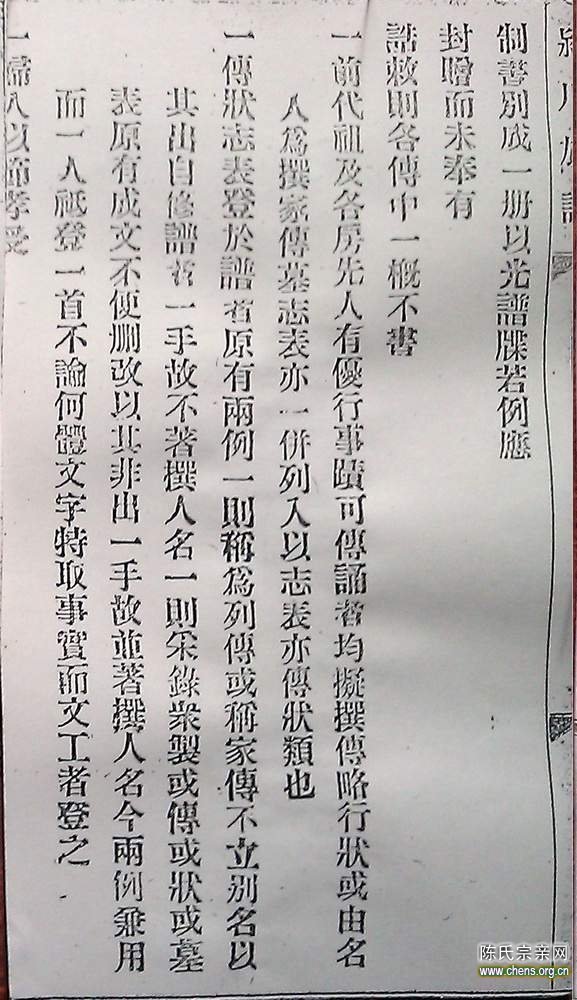 族譜
制誥別成一册以光譜牒若例應
封贈而未奉有
誥敕則各傳中一概不書
一前代祖及各房先人有優行事蹟可傳誦者均擬撰傳略行狀或由名
人爲撰家傳墓志表亦一併列入以志表亦傳狀類也
一傳狀志表登於譜者原有兩例一則稱爲列傳或稱家傳不立别名以
其出自修譜者一手故不著撰人名一則采錄衆製或傳或狀或墓
表原有成文不便删改以其非出一手故並著撰人名今兩例兼用
而一人祗登一首不論何體文字特取事實而文工者登之
一婦人以節孝受
陈氏宗亲网
www.chens.org.cn